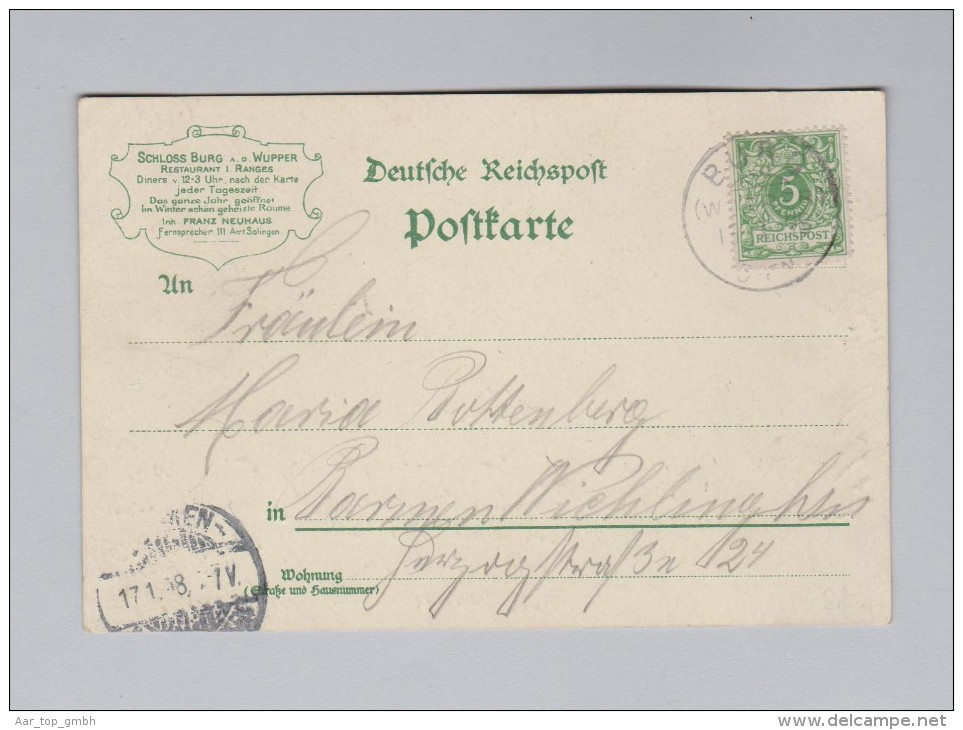 SCHLOSS BURG A. D. WUPPER
RESTAURANT I. RANGES
Diners v. 12-3 Uhr, nach der Karte
jeder Tageszeit
Das ganze Jahr geöffnet
Im Winter schön geheizte Räume
Inh. FRANZ NEUHAUS
Fernsprecher 111 Amt Solingen.
Deutsche Reichspost
Postkarte
5
PFENNIG
REICHSPOST
BUR
(W
An
Fräulein
Maria Rottenberg
in Barmen Wichlinghs
Herzogstraße 124
Wohnung
(Straße und Hausnummer)
MEN
17.1. 98, -7V.
Aar_top_gmbh
delcampe.net